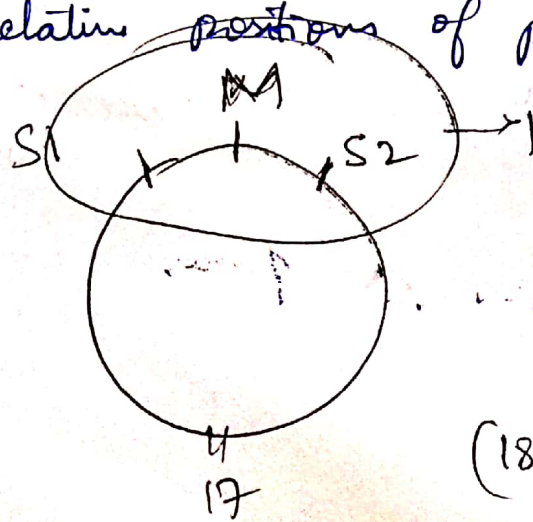 elative positions of p
M
S1 S2
17
(18